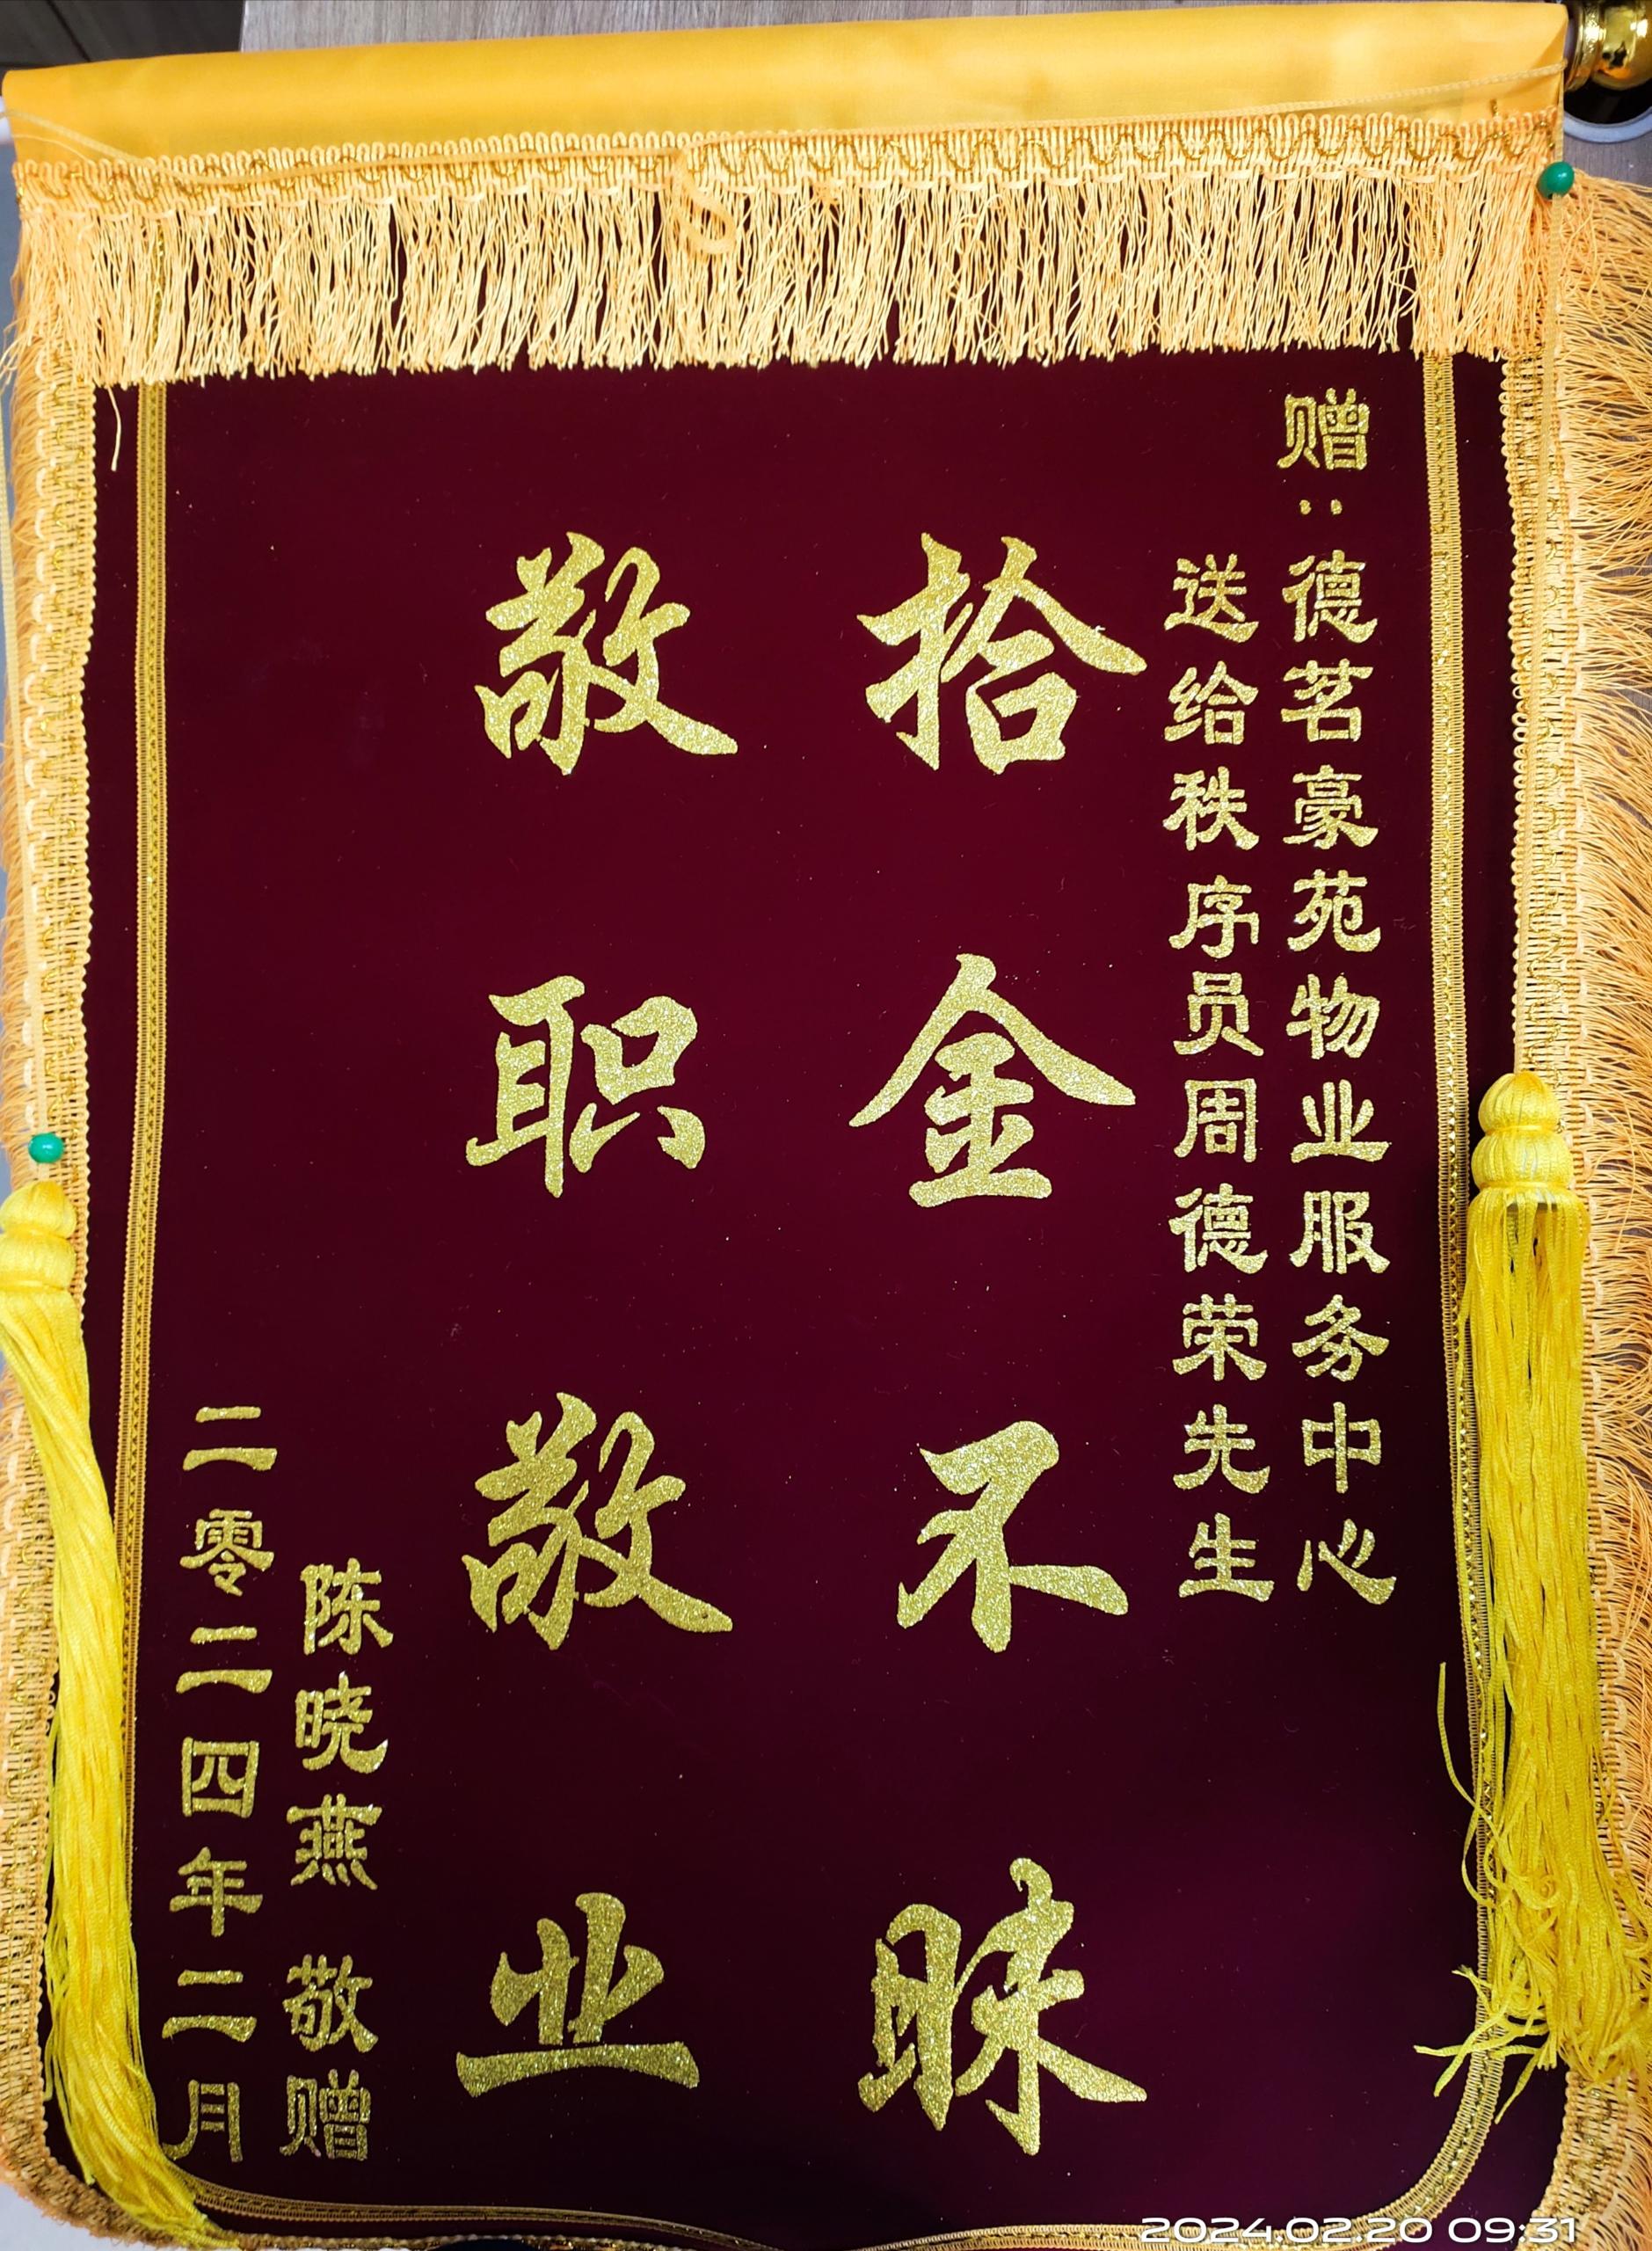 赠：德茗豪苑物业服务中心
送给秩序员周德荣先生
拾金不昧
敬职敬业
陈晓燕 敬赠
二零二四年二月
2024.02.20 09:31